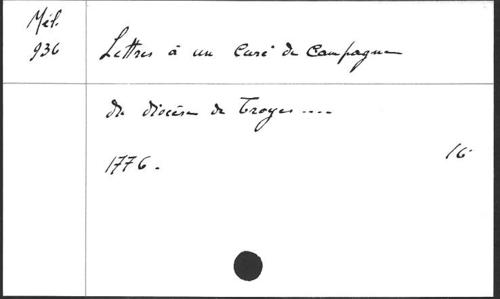 Mél.
936
Lettres à un Curé de Campagne
du diocèse de Troyes ....
1776.
16